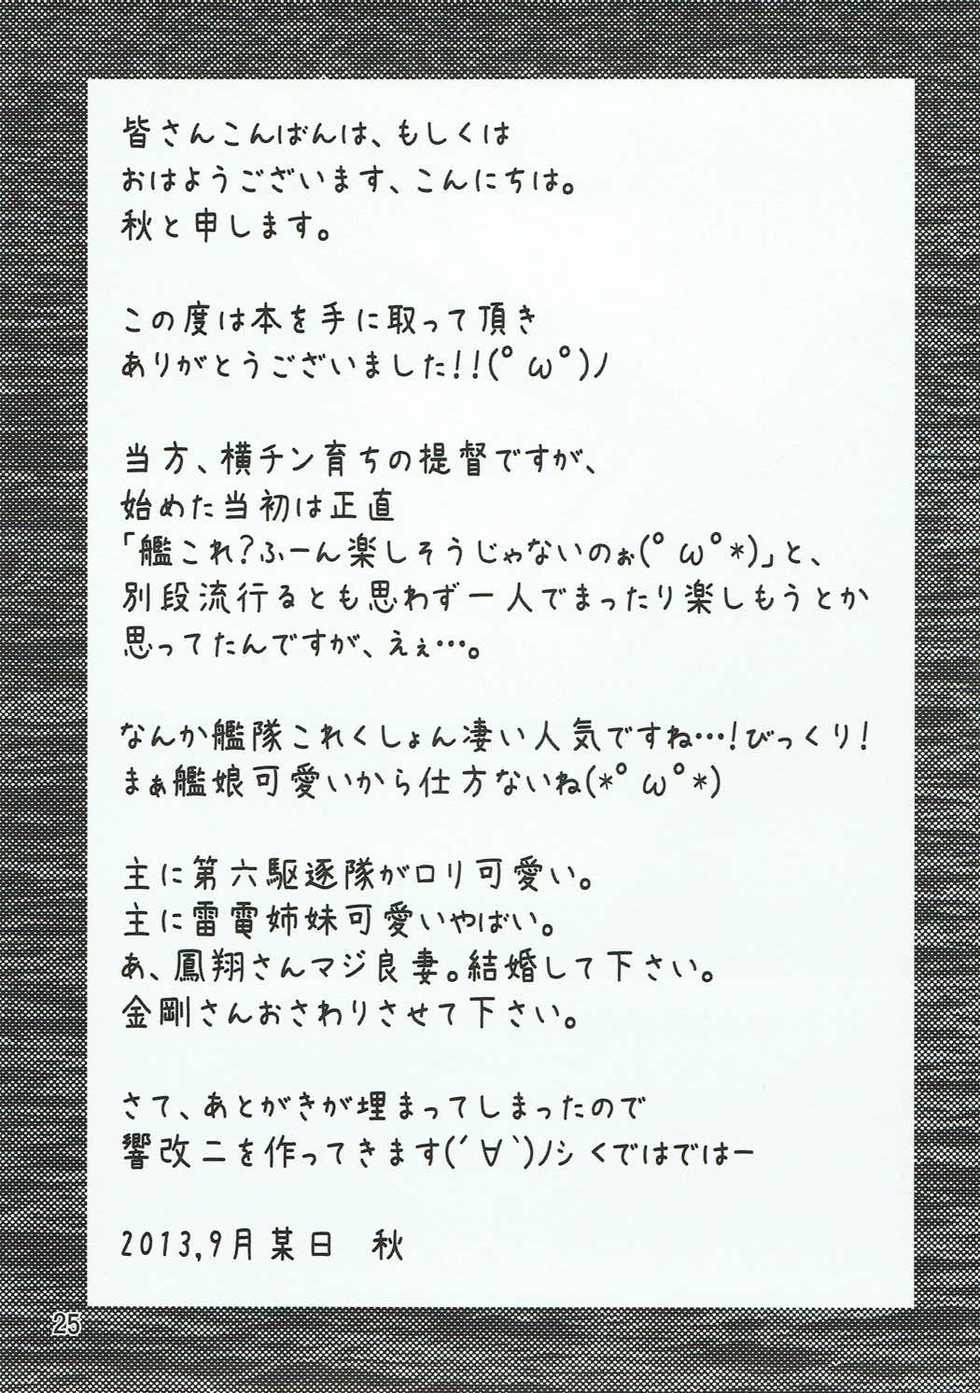 皆さんこんばんは、もしくは
おはようございます、こんにちは。
秋と申します。
この度は本を手に取って頂き
ありがとうございました!!(ﾟωﾟ)ﾉ
当方、横チン育ちの提督ですが、
始めた当初は正直
「艦これ?ふーん楽しそうじゃないのぉ(ﾟωﾟ*)」と、
別段流行るとも思わず一人でまったり楽しもうとか
思ってたんですが、えぇ…。
なんか艦隊これくしょん凄い人気ですね…!びっくり!
まぁ艦娘可愛いから仕方ないね(*ﾟωﾟ*)
主に第六駆逐隊がロリ可愛い。
主に雷電姉妹可愛いやばい。
あ、鳳翔さんマジ良妻。結婚して下さい。
金剛さんおさわりさせて下さい。
さて、あとがきが埋まってしまったので
響改二を作ってきます(´∀`)ﾉシ くではではー
2013,9月某日　秋
25